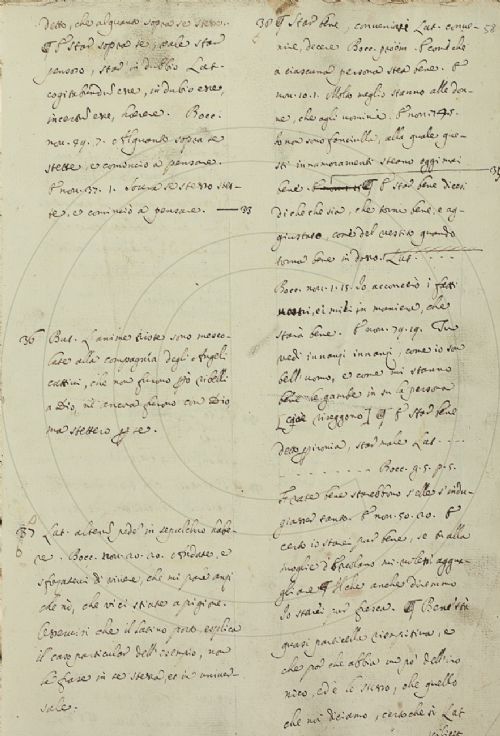 detto, che alquanto sopra se stesso.
¶ E star sopra se, vale star
pensoso, star in dubbio Lat.
esse, in dubio esse,
esse, Bocc.
nov. 59. 7. e alquanto sopra se
stette, e cominciò a pensare.
E nov. 37. 1. sopra se stesso stet-
te, e cominciò a pensare. — 33
36 But. L'anime triste sono mesco-
late alla compagnia degli Angeli
cattivi, che non furono ribelli
a Dio, nè ancora furono con Dio
ma stettero per se.
37 Lat. pede' in sepulchro habe-
re. Bocc. nov. 20. 20. andate, e
sforzatevi di vivere, che mi pare anzi
che nò, che voi ci stiate a pigione.
che il latino posto esplica
il caso particolar dell'esempio, non
la frase in se stessa, ed in univer-
sale.
38 ¶ Star bene, convenirsi Lat. conve-
nire, decere Bocc. proem. E come che
a ciascuna persona stea bene. E
nov. 10. 1. Molto meglio stanno alle don-
ne, che agli uomini. E nov. 745.
Io non sono fanciulla, alla quale que-
sti innamoramenti steano oggimai
bene. ¶ E star bene dicesi
di che che sia, che torna bene, e ag-
giustato, come del vestito quando
torna bene in dosso. Lat.
Bocc. nov. 1. 15. Io acconcerò i fatti
vostri, e i miei in maniera, che
starà bene. E nov. 79. 19. Tu
vedi innanzi innanzi come io son
bell' uomo, e come mi stanno
bene le gambe in su la persona
[cioè reggono] ¶ E star bene
detto ironia, star male Lat. - - -
- - - - - - - Bocc. g. 5. p. 5.
Frate bene starebbono s'elle s'indu-
giasser tanto. E nov. 50. 20. E
certo io starei pur bene, se tu alla
moglie d'Ercolano mi volessi aggua-
gliare ¶ Il che anche diremmo
Io starei pur fresca. ¶ Bene sta
quasi particella riempitiva, e
che però che abbia un po' dell'iro
nico, ed è lo stesso, che quello
che noi diciamo, certo che sì Lat
58